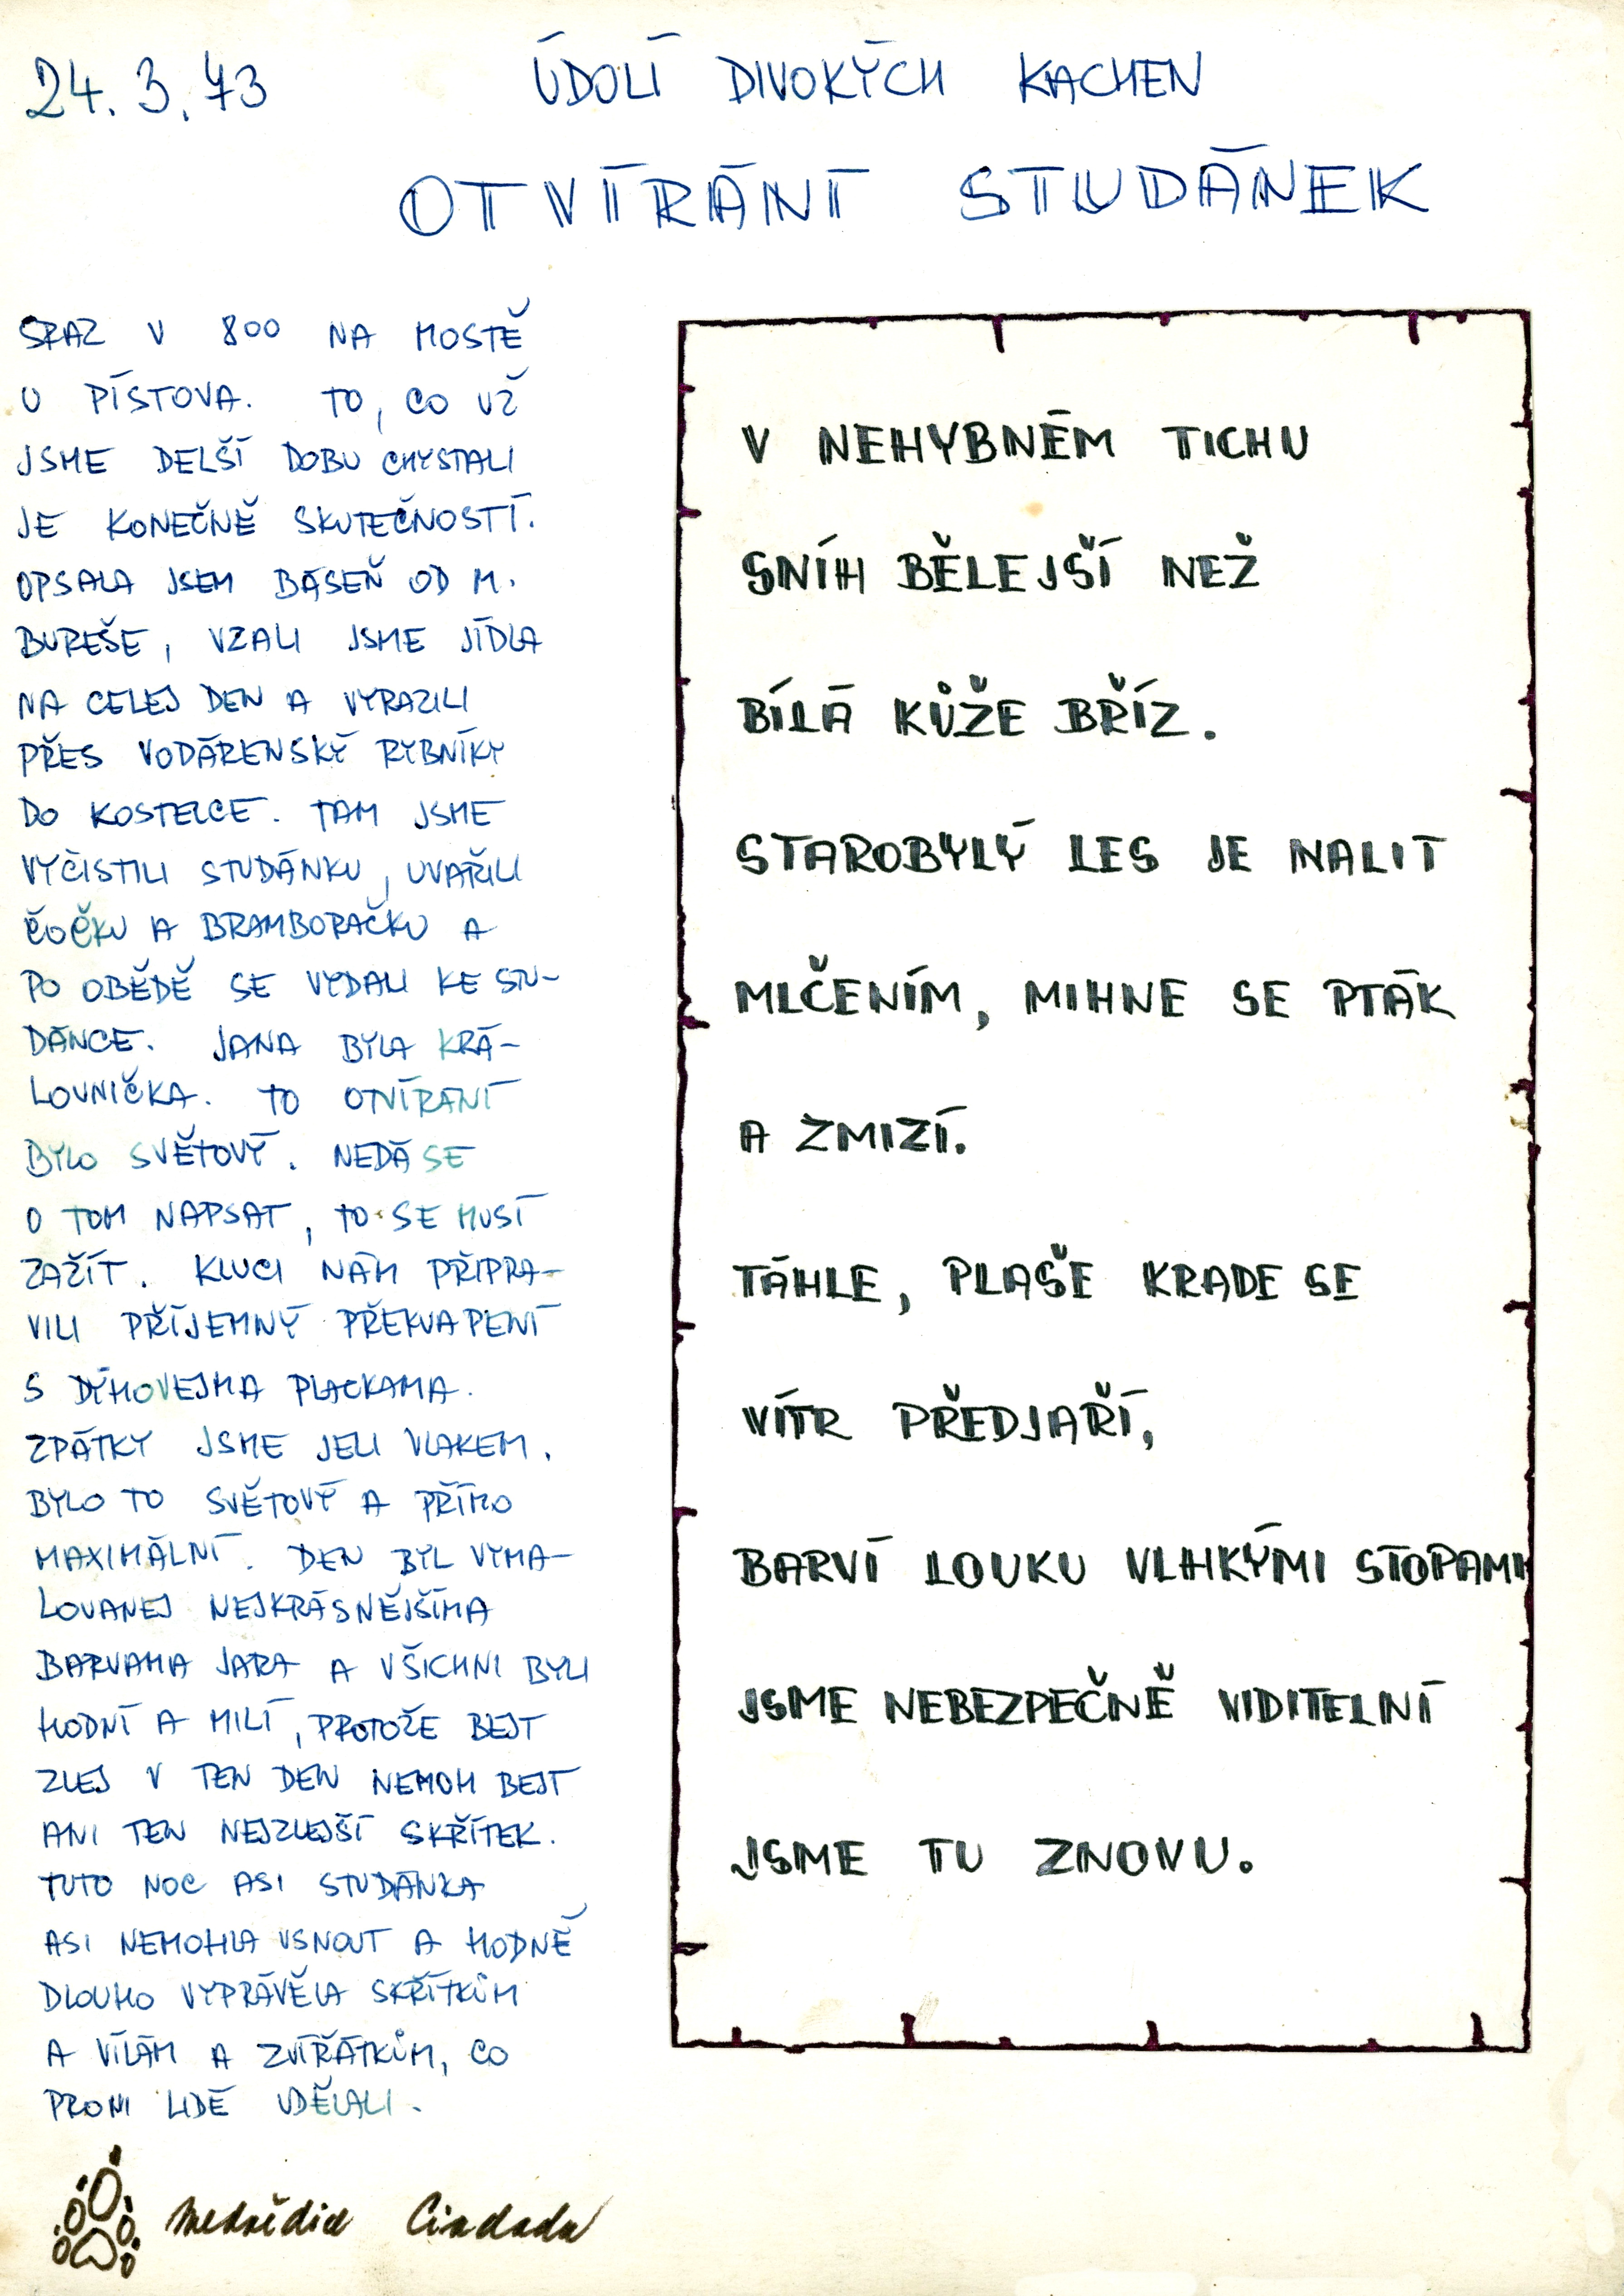 24.3.73
ÚDOLÍ DIVOKÝCH KACHEN
OTVÍRÁNÍ STUDÁNEK
SRAZ V 800 NA MOSTĚ
U PÍSTOVA. TO, CO UŽ
JSME DELŠÍ DOBU CHYSTALI
JE KONEČNĚ SKUTEČNOSTÍ.
OPSALA JSEM BÁSEŇ OD M.
BUREŠE, VZALI JSME JÍDLA
NA CELEJ DEN A VYRAZILI
PŘES VODÁRENSKÝ RYBNÍKY
DO KOSTELCE. TAM JSME
VYČISTILI STUDÁNKU, UVAŘILI
ČOČKU A BRAMBORAČKU A
PO OBĚDĚ SE VYDALI KE STU-
DÁNCE. JANA BYLA KRÁ-
LOVNIČKA. TO OTVÍRÁNÍ
BYLO SVĚTOVÝ. NEDÁ SE
O TOM NAPSAT, TO SE MUSÍ
ZAŽÍT. KLUCI NÁM PŘIPRA-
VILI PŘÍJEMNÝ PŘEKVAPENÍ
S DÝMOVEJMA PLACKAMA.
ZPÁTKY JSME JELI VLAKEM.
BYLO TO SVĚTOVÝ A PŘÍMO
MAXIMÁLNÍ. DEN BYL VYMA-
LOVANEJ NEJKRÁSNĚJŠÍMA
BARVAMA JARA A VŠICHNI BYLI
HODNÍ A MILÍ, PROTOŽE BEJT
ZLEJ V TEN DEN NEMOH BEJT
ANI TEN NEJZLEJŠÍ SKŘÍTEK.
TUTO NOC ASI STUDÁNKA
ASI NEMOHLA USNOUT A HODNĚ
DLOUHO VYPRÁVĚLA SKŘÍTKŮM
A VÍLÁM A ZVÍŘÁTKŮM, CO
PRO NI LIDÉ UDĚLALI.
Medvědice Cindada
V NEHYBNÉM TICHU
SNÍH BĚLEJŠÍ NEŽ
BÍLÁ KŮŽE BŘÍZ.
STAROBYLÝ LES JE NALIT
MLČENÍM, MIHNE SE PTÁK
A ZMIZÍ.
TÁHLE, PLAŠE KRADE SE
VÍTR PŘEDJAŘÍ,
BARVÍ LOUKU VLHKÝMI STOPAMI
JSME NEBEZPEČNĚ VIDITELNÍ
JSME TU ZNOVU.